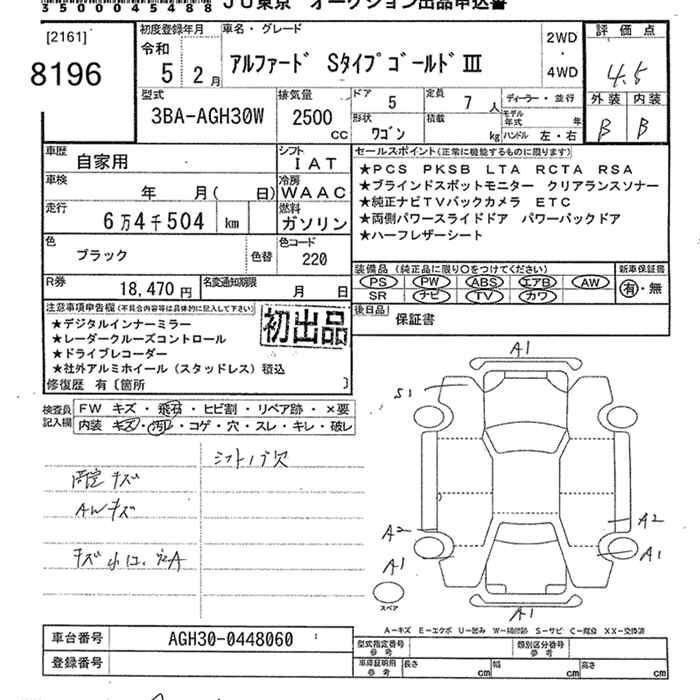 35000454 88 JU東京 オークション出品申込書
[2161]
8196
初度登録年月
令和
5 2月
車名・グレード
アルファード Sタイプゴールド Ⅲ
2WD
・
4WD
評価点
4.5
外装 内装
B B
型式
3BA-AGH30W
排気量
2500
cc
ドア
5
定員
7 人
形状
ワゴン
積載
kg
ディーラー・並行
モデル年式 年
ハンドル 左・右
車歴
自家用
シフト
IAT
車検
年 月( 日)
冷房
WAAC
走行
6万4千504 km
燃料
ガソリン
色
ブラック
色替
色コード
220
R券
18,470円
名変通知期限
月 日
セールスポイント(正常に機能するものに限ります)
★PCS PKSB LTA RCTA RSA
★ブラインドスポットモニター クリアランスソナー
★純正ナビTVバックカメラ ETC
★両側パワースライドドア パワーバックドア
★ハーフレザーシート
装備品 (純正品に限り○をつけてください)
PS PW ABS エアB AW
SR ナビ TV カワ
新車保証書
有・無
後日品
保証書
注意事項申告欄(不具合内容等は具体的に記入して下さい)
★デジタルインナーミラー
★レーダークルーズコントロール
★ドライブレコーダー
★社外アルミホイール (スタッドレス) 積込
修復歴 有〔箇所 〕
初出品
検査員記入欄
FW キズ・飛石・ヒビ割・リペア跡・×要
内装 キズ・汚レ・コゲ・穴・スレ・キレ・破レ
シフトノブ欠
両定キズ
AWキズ
キズ小凹、
A1
S1
A2
A1
A2
A1
A1
スペア
A-キズ E-エクボ U-凹み W-補修跡 S-サビ C-腐食 XX-交換済
車台番号
AGH30-0448060
登録番号
型式指定番号
参考
類別区分番号
参考
車庫証明用
参考
長さ cm
幅 cm
高さ cm